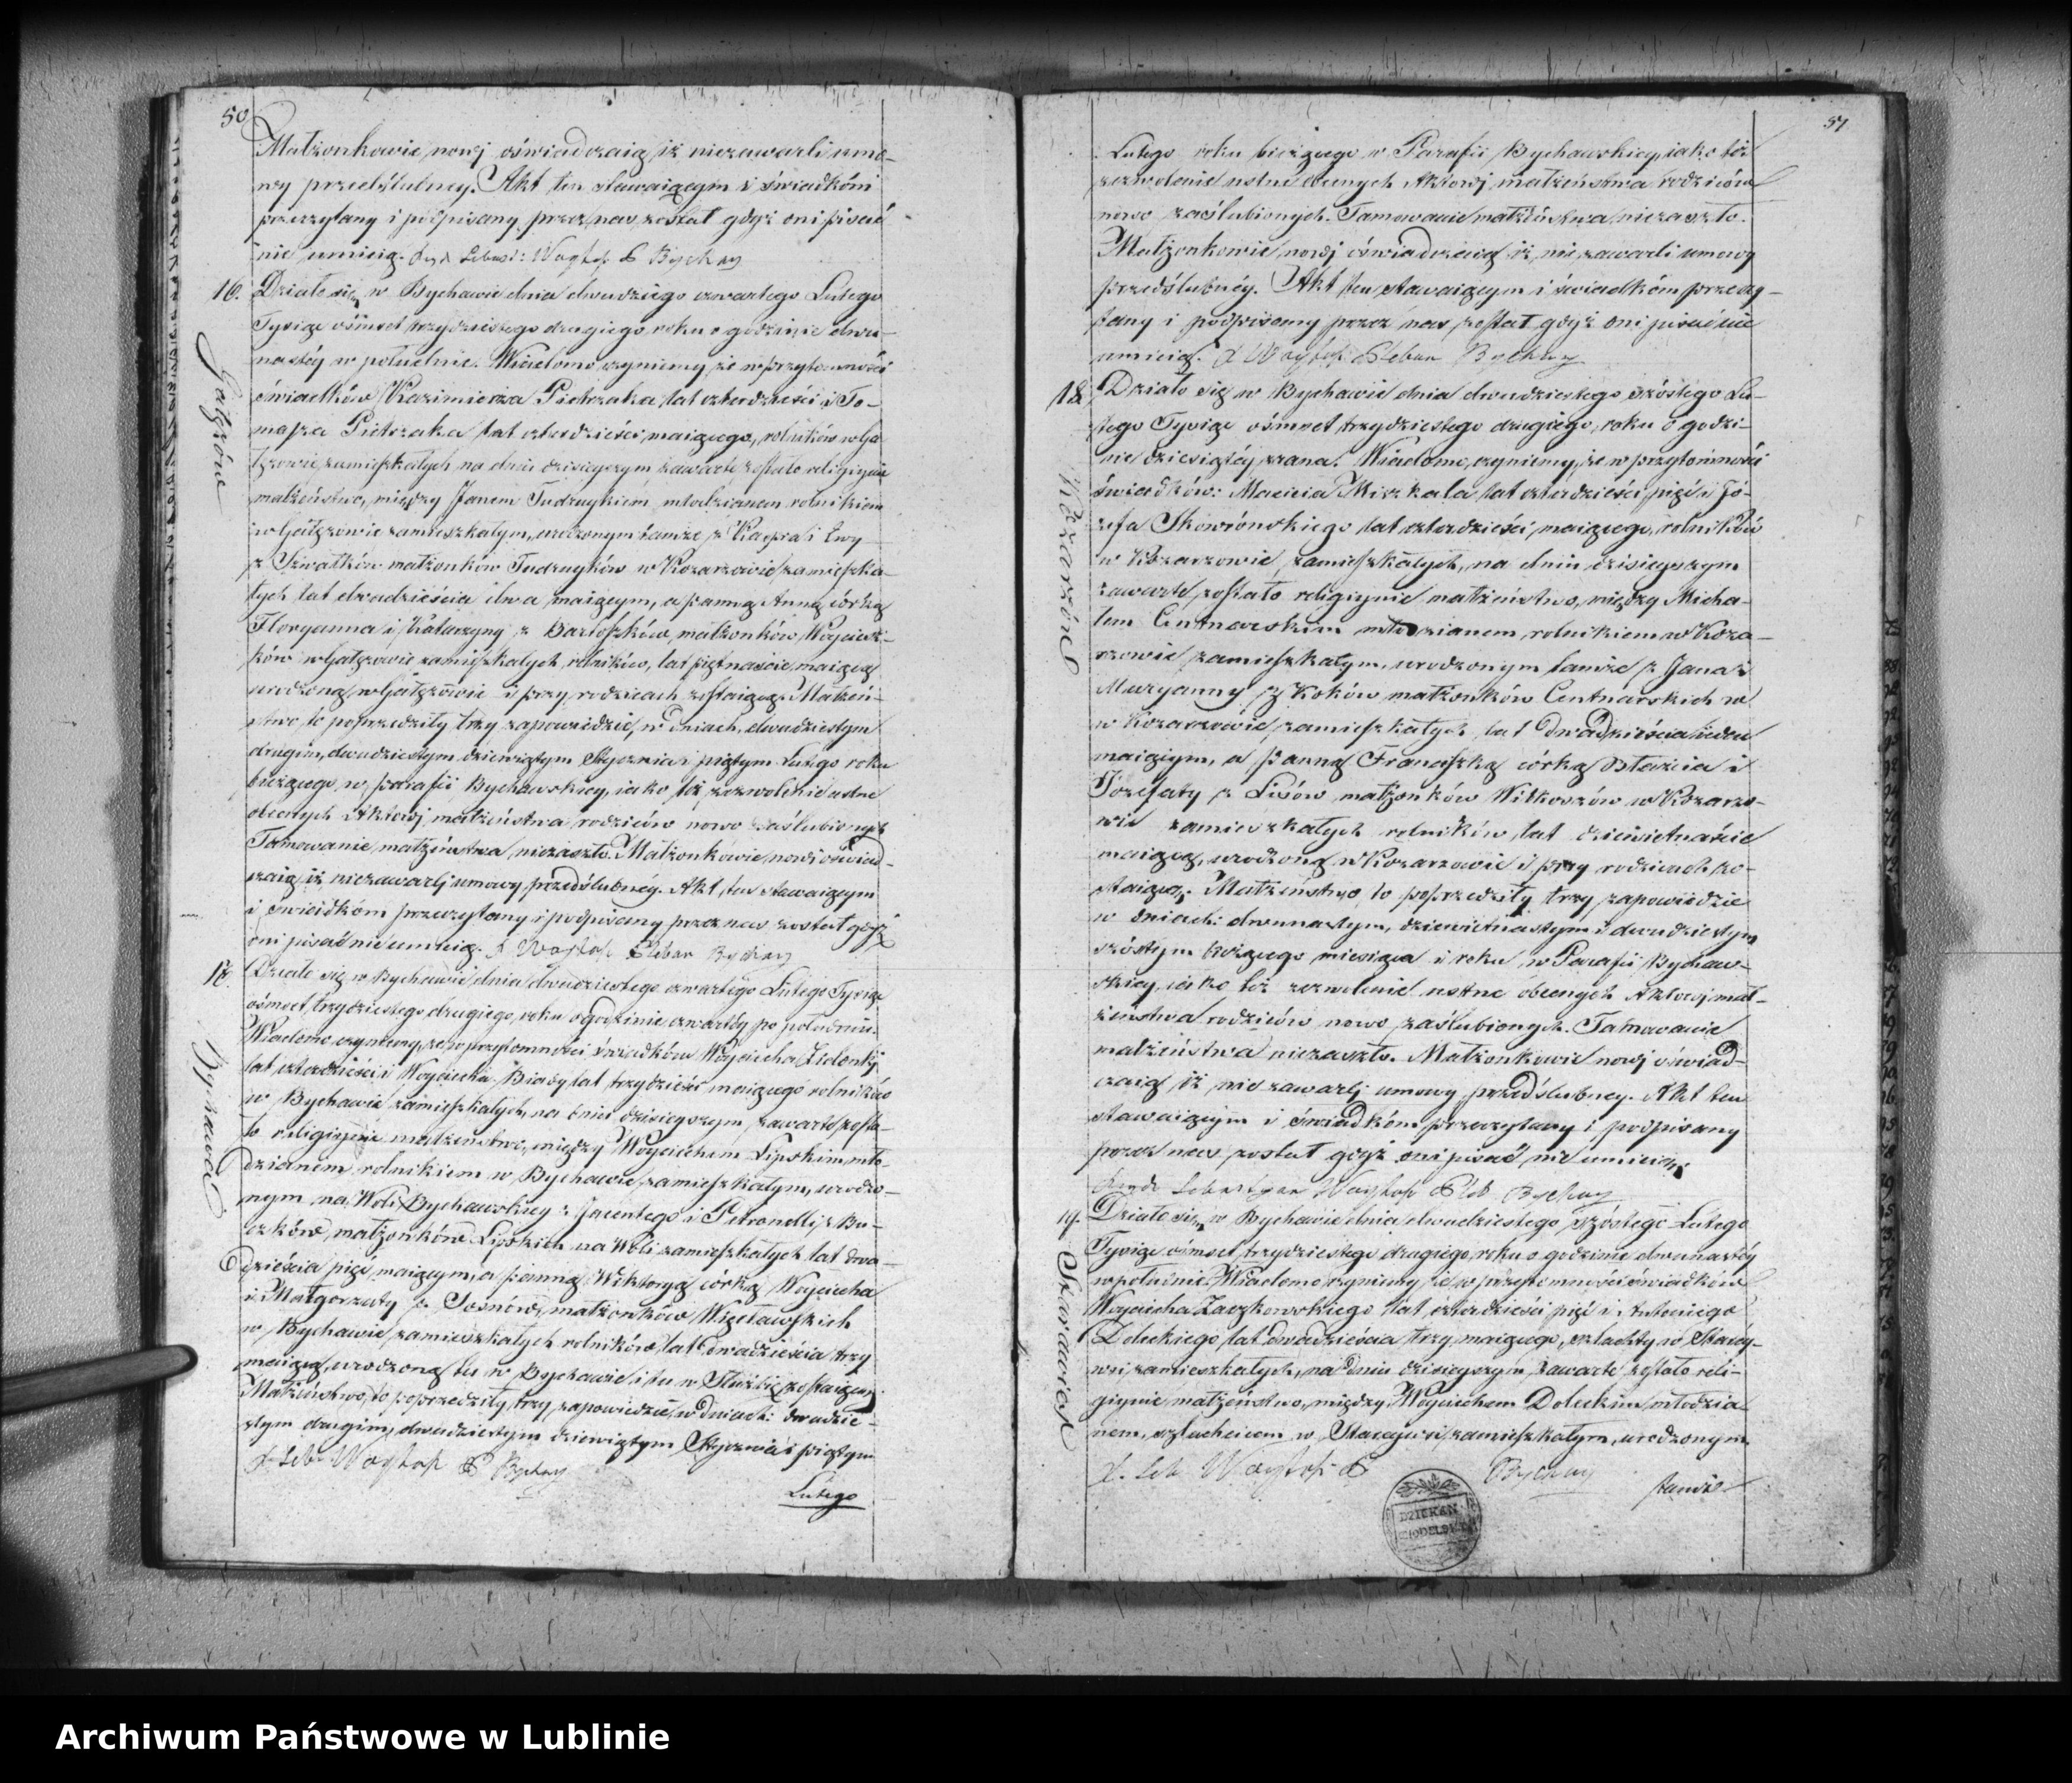 50
Małżonkowie nowj oświadczaią iż niezawarli umo-
wy przedślubney. Akt ten stawaiącym i świadkóm
przeczytany i podpisany przez nas został gdyż oni pisać
nie umieią.
16. Działo się w Bychawie dnia dwudziego czwartego Lutego
Gałęzów
Tysiąc ośmset trzydziestego drugiego roku o godzinie dwu-
nastéy w południe. Wiadomo czynimy że w przytomności
świadków Kazimierza Pietrzaka lat czterdzieści i To-
masza Pietrzaka lat czterdzieści maiącego, rolników w Ga
łęzowie zamieszkałych na dniu dzisieyszym zawarte zostało religiynie
małżeństwo, między Janem Tudruykiem młodzianem rolnikiem
w Gałęzowie zamieszkałym, urodzonym tamże z Kacpra i Ewy
z małżonków Tudruyków w Kozarzowie zamieszka-
łych lat dwadzieścia dwa maiącym, a panną Anną córką
Floryanna i Katarzyny z Bartoszków, małżonków
w Gałęzowie zamieszkałych rolników, lat piętnaście maiącą
urodzoną w Gałęzowie i przy rodzicach zostaiącą. Małżeń-
stwo to poprzedziły trzy zapowiedzie, w dniach, dwudziestym
drugim, dwudziestym dziewiątym Stycznia i piątym Lutego roku
bieżącego w parafii Bychawskiey, iako też zezwolenie ustne
obecnych Aktowj małżeństwa rodziców nowo zaślubionych
Tamowanie małżeństwa niezaszło. Małżonkowie nowi oświad-
czaią iż niezawarlj umowy przedślubnéy. Akt ten stawaiącym
i świadkóm przeczytany i podpisany przez nas został gdyż
oni pisać nie umieią. X Woytas Pleban Bychawy
17. Działo się w Bychawie dnia dwudziestego czwartego Lutego Tysiąc
Bychawa
ośmset trzydziestego drugiego roku o godzinie czwartéy po południu.
Wiadomo czynimy, że w przytomności świadków Woyciecha Zielonki
lat czterdzieści i Woyciecha Biały lat trzydzieści maiącego rolników
w Bychawie zamieszkałych, na dniu dzisieyszym zawarte zosta-
ło religiynie małżeństwo, między Woyciechem Lipskim mło-
dzianem rolnikiem w Bychawie zamieszkałym, urodzo-
nym na Woli Bychawskiey z Jacentego i Petronelli z Bu-
czków, małżonków Lipskich na Woli zamieszkałych lat dwa-
dzieścia pięć maiącym, a panną Wiktoryą córką Woyciecha
i Małgorzaty z Sosnów, małżonków Więcławskich
w Bychawie zamieszkałych rolników, lat dwadzieścia trzy
maiącą, urodzoną tu w Bychawie i tu w Służbie zostaiącą
Małżeństwo to poprzedziły trzy zapowiedzie w dniach: dwudzie-
stym drugim, dwudziestym dziewiątym Stycznia i piątym
Lutego
51
Lutego roku bieżącego w Parafii Bychawskiey, iako też
zezwolenie ustne obecnych Aktowj małżeństwa rodziców
nowo zaślubionych. Tamowanie małżeństwa niezaszło.
Małżonkowie nowj oświadczaią iż nie zawarli umowy
przedślubnéy. Akt ten stawaiącym i świadkóm przeczy-
tany i podpisany przez nas został gdyż oni pisać nie
umieią. X Woytas Pleban Bychawy
18. Działo się w Bychawie dnia dwudziestego szóstego Lu-
Kozarzów
tego Tysiąc ośmset trzydziestego drugiego, roku o godzi-
nie dziesiątéy zrana. Wiadomo czyniemy, że w przytomności
świadków: Macieia Miszkala lat czterdzieści pięć i Jó-
zefa Skowrońskiego lat czterdzieści maiącego, rolników
w Kozarzowie zamieszkałych, na dniu dzisieyszym
zawarte zostało religiynie małżeństwo, między Micha-
łem Centnarskim młodzianem, rolnikiem w Koza-
rzowie zamieszkałym, urodzonym tamże z Jana i
Maryanny z Koków małżonków Centnarskich w
w Kozarzowie zamieszkałych, lat dwadzieścia ieden
maiącym, a panną Franciszką córką Błażeia i
Józefaty z Lisów małżonków Witkoszów w Kozarzo-
wie zamieszkałych rolników, lat dziewietnaście
maiącą, urodzoną w Kozarzowie i przy rodzicach zo-
staiącą. Małżeństwo to poprzedziły trzy zapowiedzie
w dniach: dwunastym, dziewietnastym i dwudziestym
szóstym bieżącego miesiąca i roku, w Parafii Bychaw-
skiey, iako też zezwolenie ustne obecnych Aktowj mał-
żeństwa rodziców nowo zaślubionych. Tamowanie
małżeństwa niezaszło. Małżonkowie nowj oświad-
czaią iż nie zawarlj umowy przedślubney. Akt ten
stawaiącym i świadkóm przeczytany i podpisany
przez nas został gdyż oni pisać nie umieią.
Xiądz Sebastyan Woytas Pleb Bychawy
19. Działo się w Bychawie dnia dwudziestego szóstego Lutego
Starawieś
Tysiąc ośmset trzydziestego drugiego, roku o godzinie dwunastéy
w południe. Wiadomo czyniemy, że w przytomności świadków
Woyciecha Zaczkowskiego lat czterdzieści pięć i Antoniego
Doleckiego lat dwadzieścia trzy maiącego, szlachty w Staréy-
wsi zamieszkałych, na dniu dzisieyszym zawarte zostało reli-
giynie małżeństwo, między Woyciechem Doleckim młodzia
nem, szlachcicem w Stareywsi zamieszkałym, urodzonym
tamże
DZIEKAN
Archiwum Państwowe w Lublinie